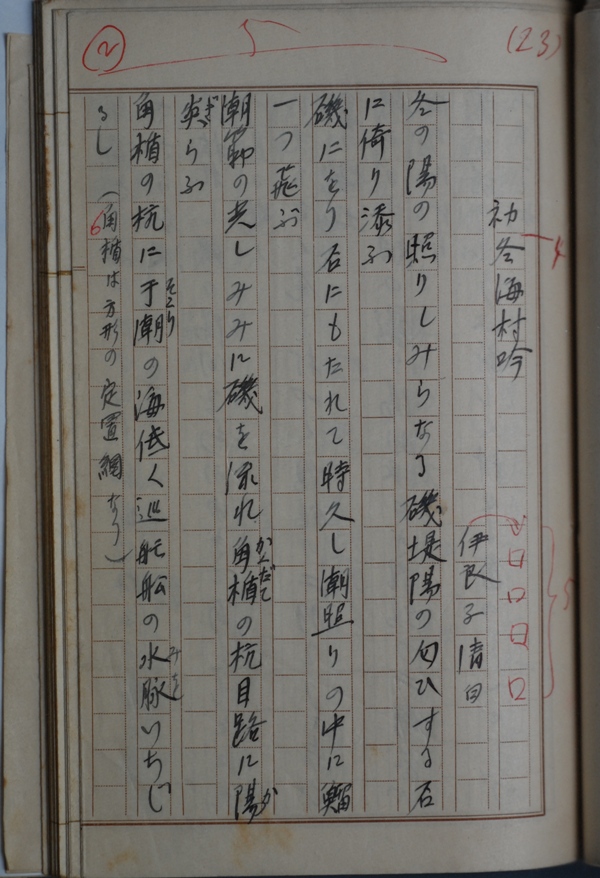 ② 5 (23)
初冬海村吟 4
伊良子清白
冬の陽の照りしみらなる磯堤陽の匂ひする石
に倚り添ふ
磯にをり石にもたれて時久し潮照りの中に鰡
一つ飛ぶ
潮騒の光しみみに磯を流れ角楯の杭目路に陽
炎らふ
角楯の杭に干潮の海低く巡航船の水脈いちじ
るし (角楯は方形の定置網なり) 6